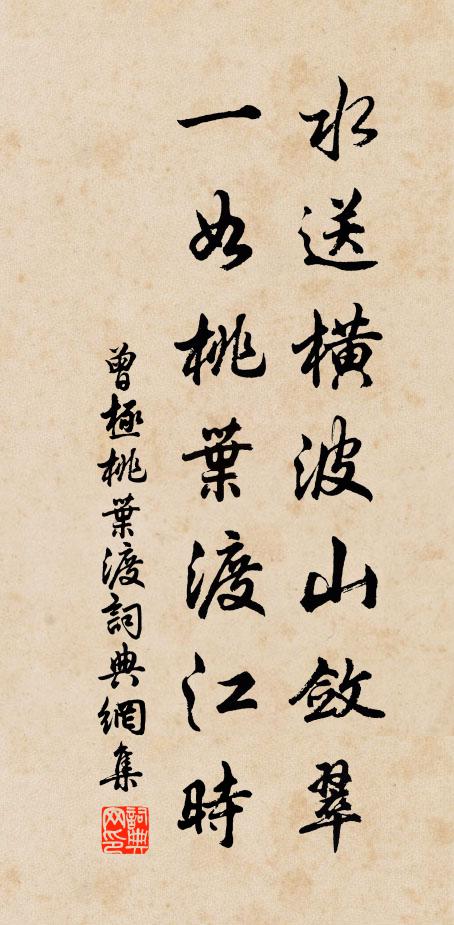 水送橫波山斂翠
一如桃葉渡江時
曾極桃葉渡詞典網集
詞典網印